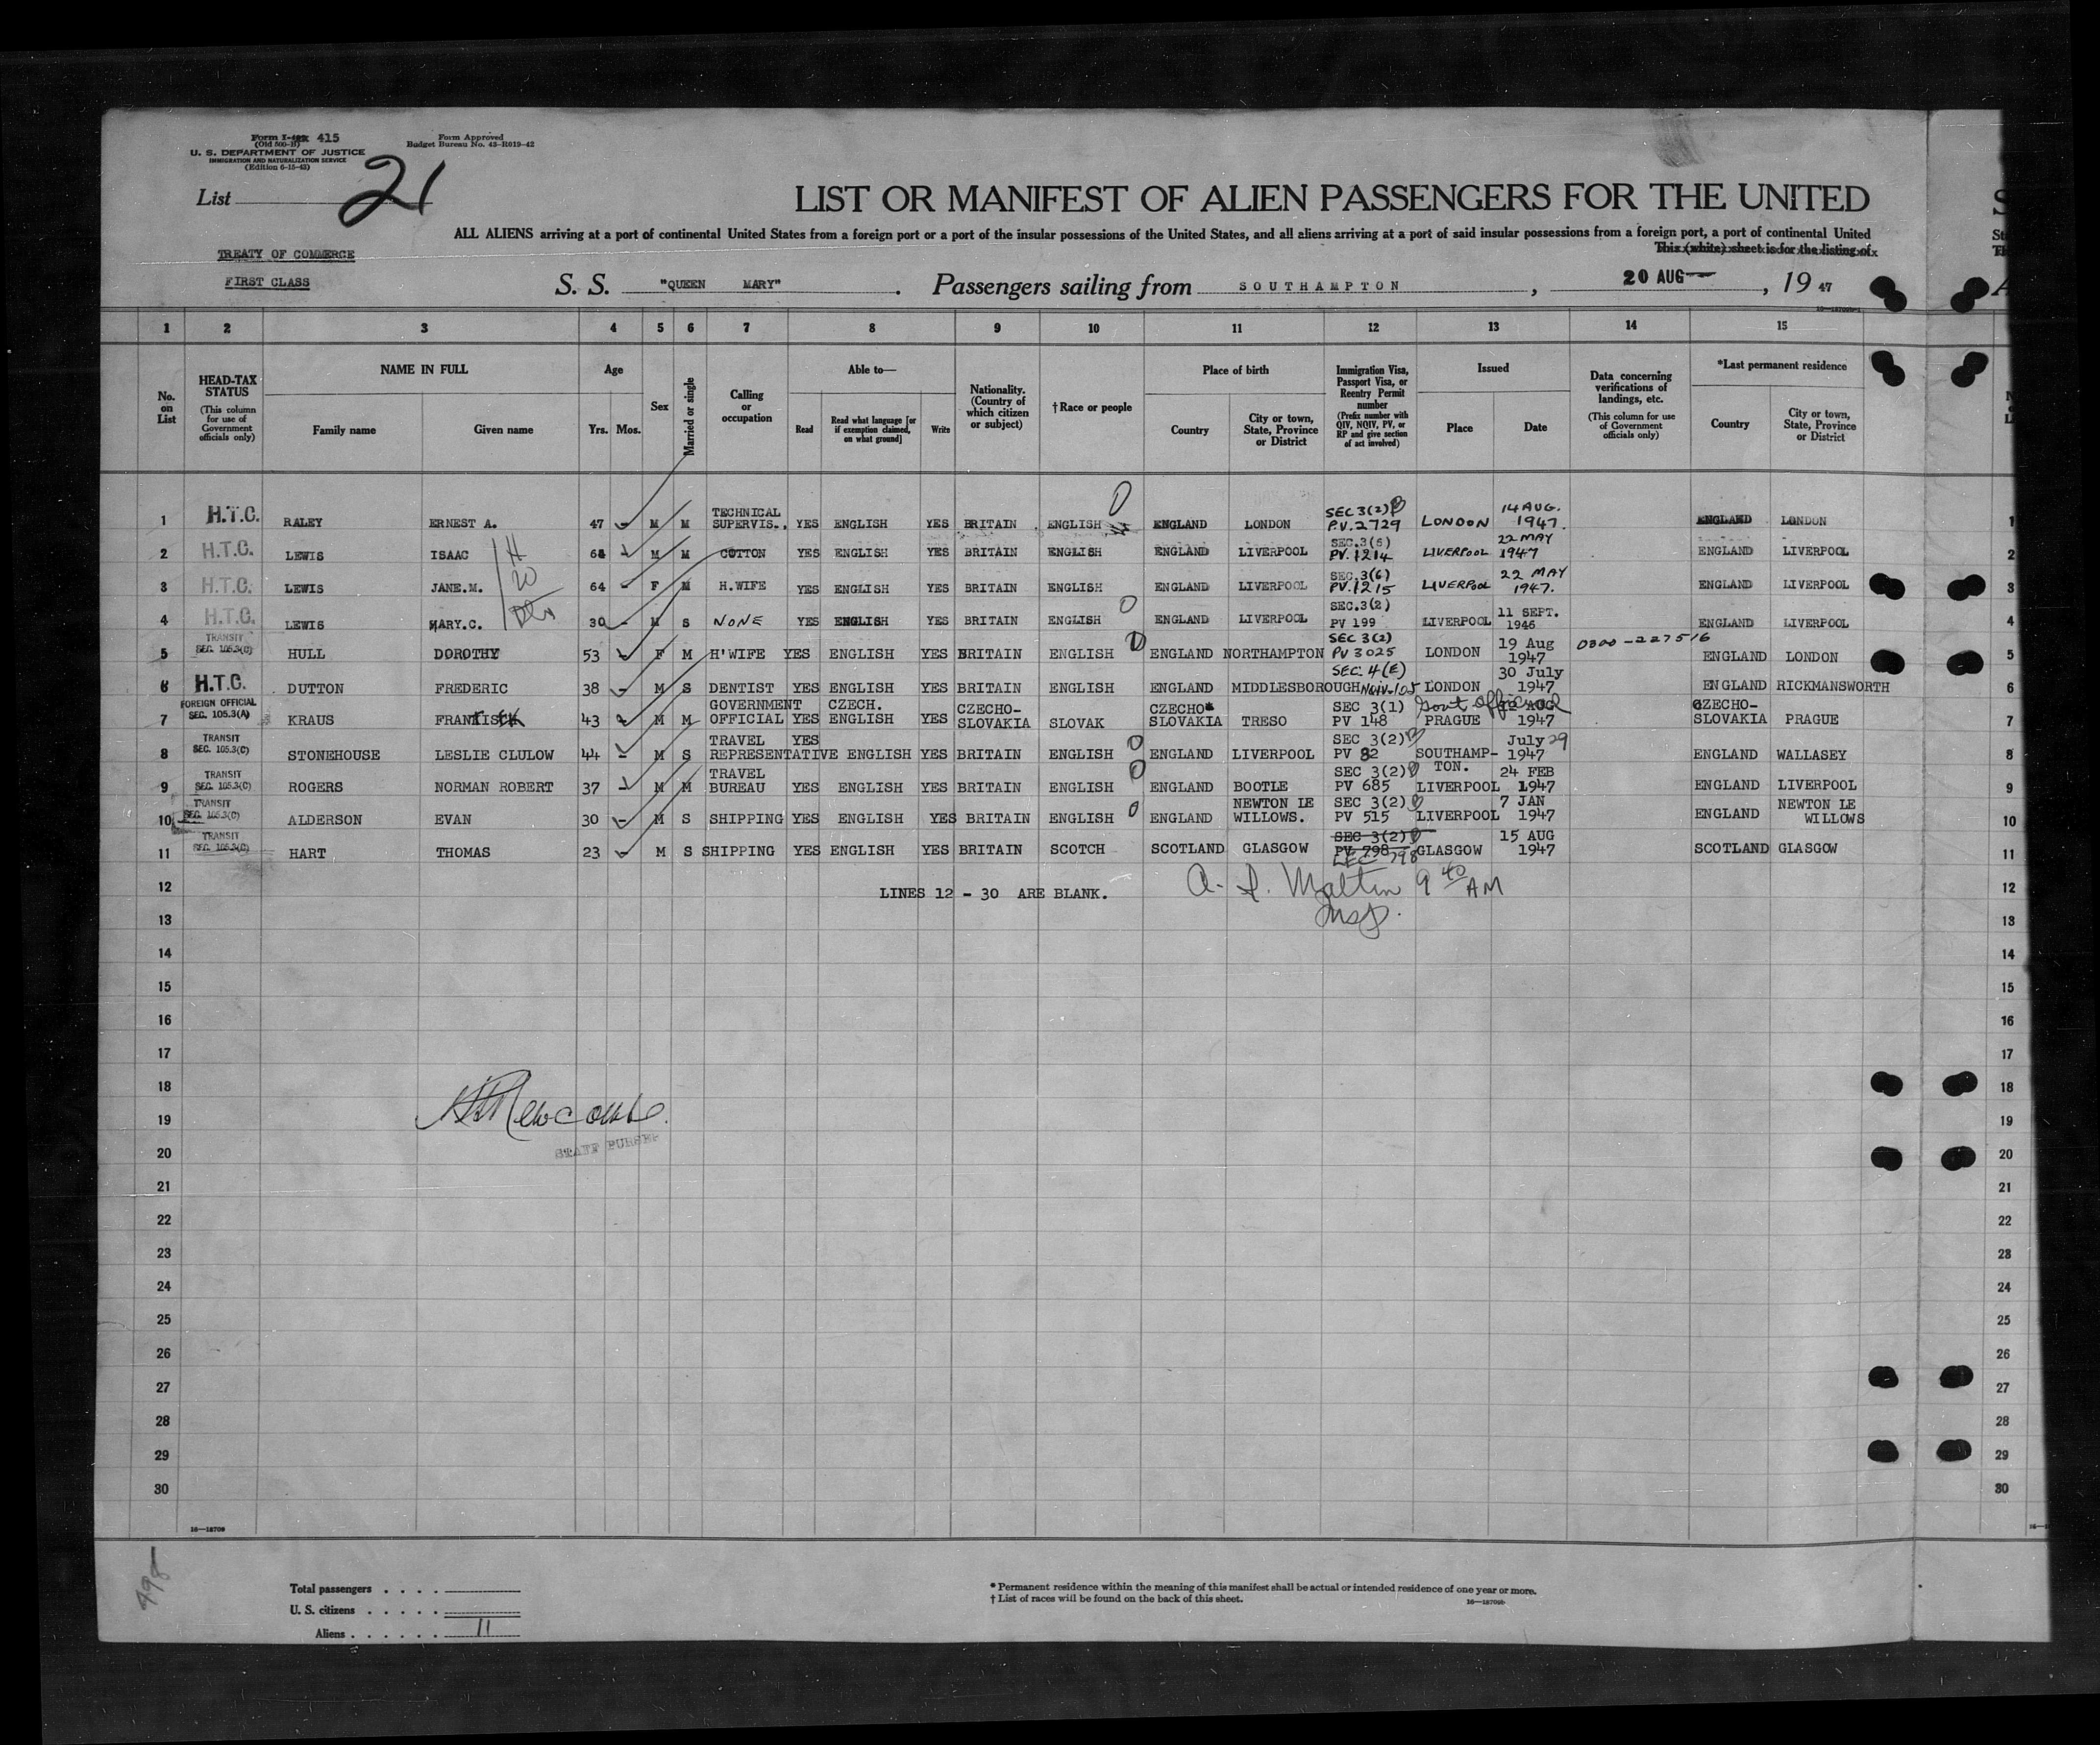 Form I-415
(Old 500-B)
U. S. DEPARTMENT OF JUSTICE
IMMIGRATION AND NATURALIZATION SERVICE
(Edition 6-15-43)
Form Approved
Budget Bureau No. 43-R019-42
List 21
LIST OR MANIFEST OF ALIEN PASSENGERS FOR THE UNITED
ALL ALIENS arriving at a port of continental United States from a foreign port or a port of the insular possessions of the United States, and all aliens arriving at a port of said insular possessions from a foreign port, a port of continental United
This (white) sheet is for the listing of
TREATY OF COMMERCE
FIRST CLASS
S. S. "QUEEN MARY" . Passengers sailing from SOUTHAMPTON , 20 AUG , 19 47
1 2 3 4 5 6 7 8 9 10 11 12 13 14 15
No. on List
HEAD-TAX STATUS
(This column for use of Government officials only)
NAME IN FULL
Family name Given name
Age
Yrs. Mos.
Sex
Married or single
Calling or occupation
Able to—
Read
Read what language [or if exemption claimed, on what ground]
Write
Nationality. (Country of which citizen or subject)
†Race or people
Place of birth
Country
City or town, State, Province or District
Immigration Visa, Passport Visa, or Reentry Permit number
(Prefix number with QIV, NQIV, PV, or RP and give section of act involved)
Issued
Place Date
Data concerning verifications of landings, etc.
(This column for use of Government officials only)
*Last permanent residence
Country
City or town, State, Province or District
1 H.T.C. RALEY ERNEST A. 47 M M TECHNICAL SUPERVIS. YES ENGLISH YES BRITAIN ENGLISH ENGLAND LONDON SEC 3(2)B P.V. 2729 LONDON 14 AUG. 1947. ENGLAND LONDON 1
2 H.T.C. LEWIS ISAAC 64 M M COTTON YES ENGLISH YES BRITAIN ENGLISH ENGLAND LIVERPOOL SEC.3(6) PV. 1214 LIVERPOOL 22 MAY 1947 ENGLAND LIVERPOOL 2
3 H.T.C. LEWIS JANE.M. 64 F M H.WIFE YES ENGLISH YES BRITAIN ENGLISH ENGLAND LIVERPOOL SEC.3(6) PV. 1215 LIVERPOOL 22 MAY 1947. ENGLAND LIVERPOOL 3
4 H.T.C. LEWIS MARY.C. 30 S NONE YES ENGLISH YES BRITAIN ENGLISH ENGLAND LIVERPOOL SEC.3(2) PV 199 LIVERPOOL 11 SEPT. 1946 ENGLAND LIVERPOOL 4
5 TRANSIT SEC. 105.3(C) HULL DOROTHY 53 F M H'WIFE YES ENGLISH YES BRITAIN ENGLISH ENGLAND NORTHAMPTON SEC 3(2) PV 3025 LONDON 19 Aug 1947 0300-227516 ENGLAND LONDON 5
6 H.T.C. DUTTON FREDERIC 38 M S DENTIST YES ENGLISH YES BRITAIN ENGLISH ENGLAND MIDDLESBOROUGH SEC. 4(E) NQIV-105 LONDON 30 July 1947 ENGLAND RICKMANSWORTH 6
7 FOREIGN OFFICIAL SEC. 105.3(A) KRAUS FRANTISEK 43 M M GOVERNMENT OFFICIAL YES CZECH. ENGLISH YES CZECHO-SLOVAKIA SLOVAK CZECHO SLOVAKIA TRESO SEC 3(1) PV 148 Govt official PRAGUE 12 AUG 1947 CZECHO-SLOVAKIA PRAGUE 7
8 TRANSIT SEC. 105.3(C) STONEHOUSE LESLIE CLULOW 44 M S TRAVEL REPRESENTATIVE YES ENGLISH YES BRITAIN ENGLISH ENGLAND LIVERPOOL SEC 3(2)B PV 82 SOUTHAMP-TON. July 29 1947 ENGLAND WALLASEY 8
9 TRANSIT SEC. 105.3(C) ROGERS NORMAN ROBERT 37 M M TRAVEL BUREAU YES ENGLISH YES BRITAIN ENGLISH ENGLAND BOOTLE SEC 3(2)B PV 685 LIVERPOOL 24 FEB 1947 ENGLAND LIVERPOOL 9
10 TRANSIT SEC. 105.3(C) ALDERSON EVAN 30 M S SHIPPING YES ENGLISH YES BRITAIN ENGLISH ENGLAND NEWTON LE WILLOWS. SEC 3(2)B PV 515 LIVERPOOL 7 JAN 1947 ENGLAND NEWTON LE WILLOWS 10
11 TRANSIT SEC. 105.3(C) HART THOMAS 23 M S SHIPPING YES ENGLISH YES BRITAIN SCOTCH SCOTLAND GLASGOW SEC 3(2)B PV 798 798 GLASGOW 15 AUG 1947 SCOTLAND GLASGOW 11
12 LINES 12 - 30 ARE BLANK. 9 40 AM 12
Insp.
13 13
14 14
15 15
16 16
17 17
18 18
19 Newcombe. 19
STAFF PURSER
20 20
21 21
22 22
23 23
24 24
25 25
26 26
27 27
28 28
29 29
30 30
16—18709
498
Total passengers . . . .
U. S. citizens . . . . .
Aliens . . . . . . 11
* Permanent residence within the meaning of this manifest shall be actual or intended residence of one year or more.
† List of races will be found on the back of this sheet.